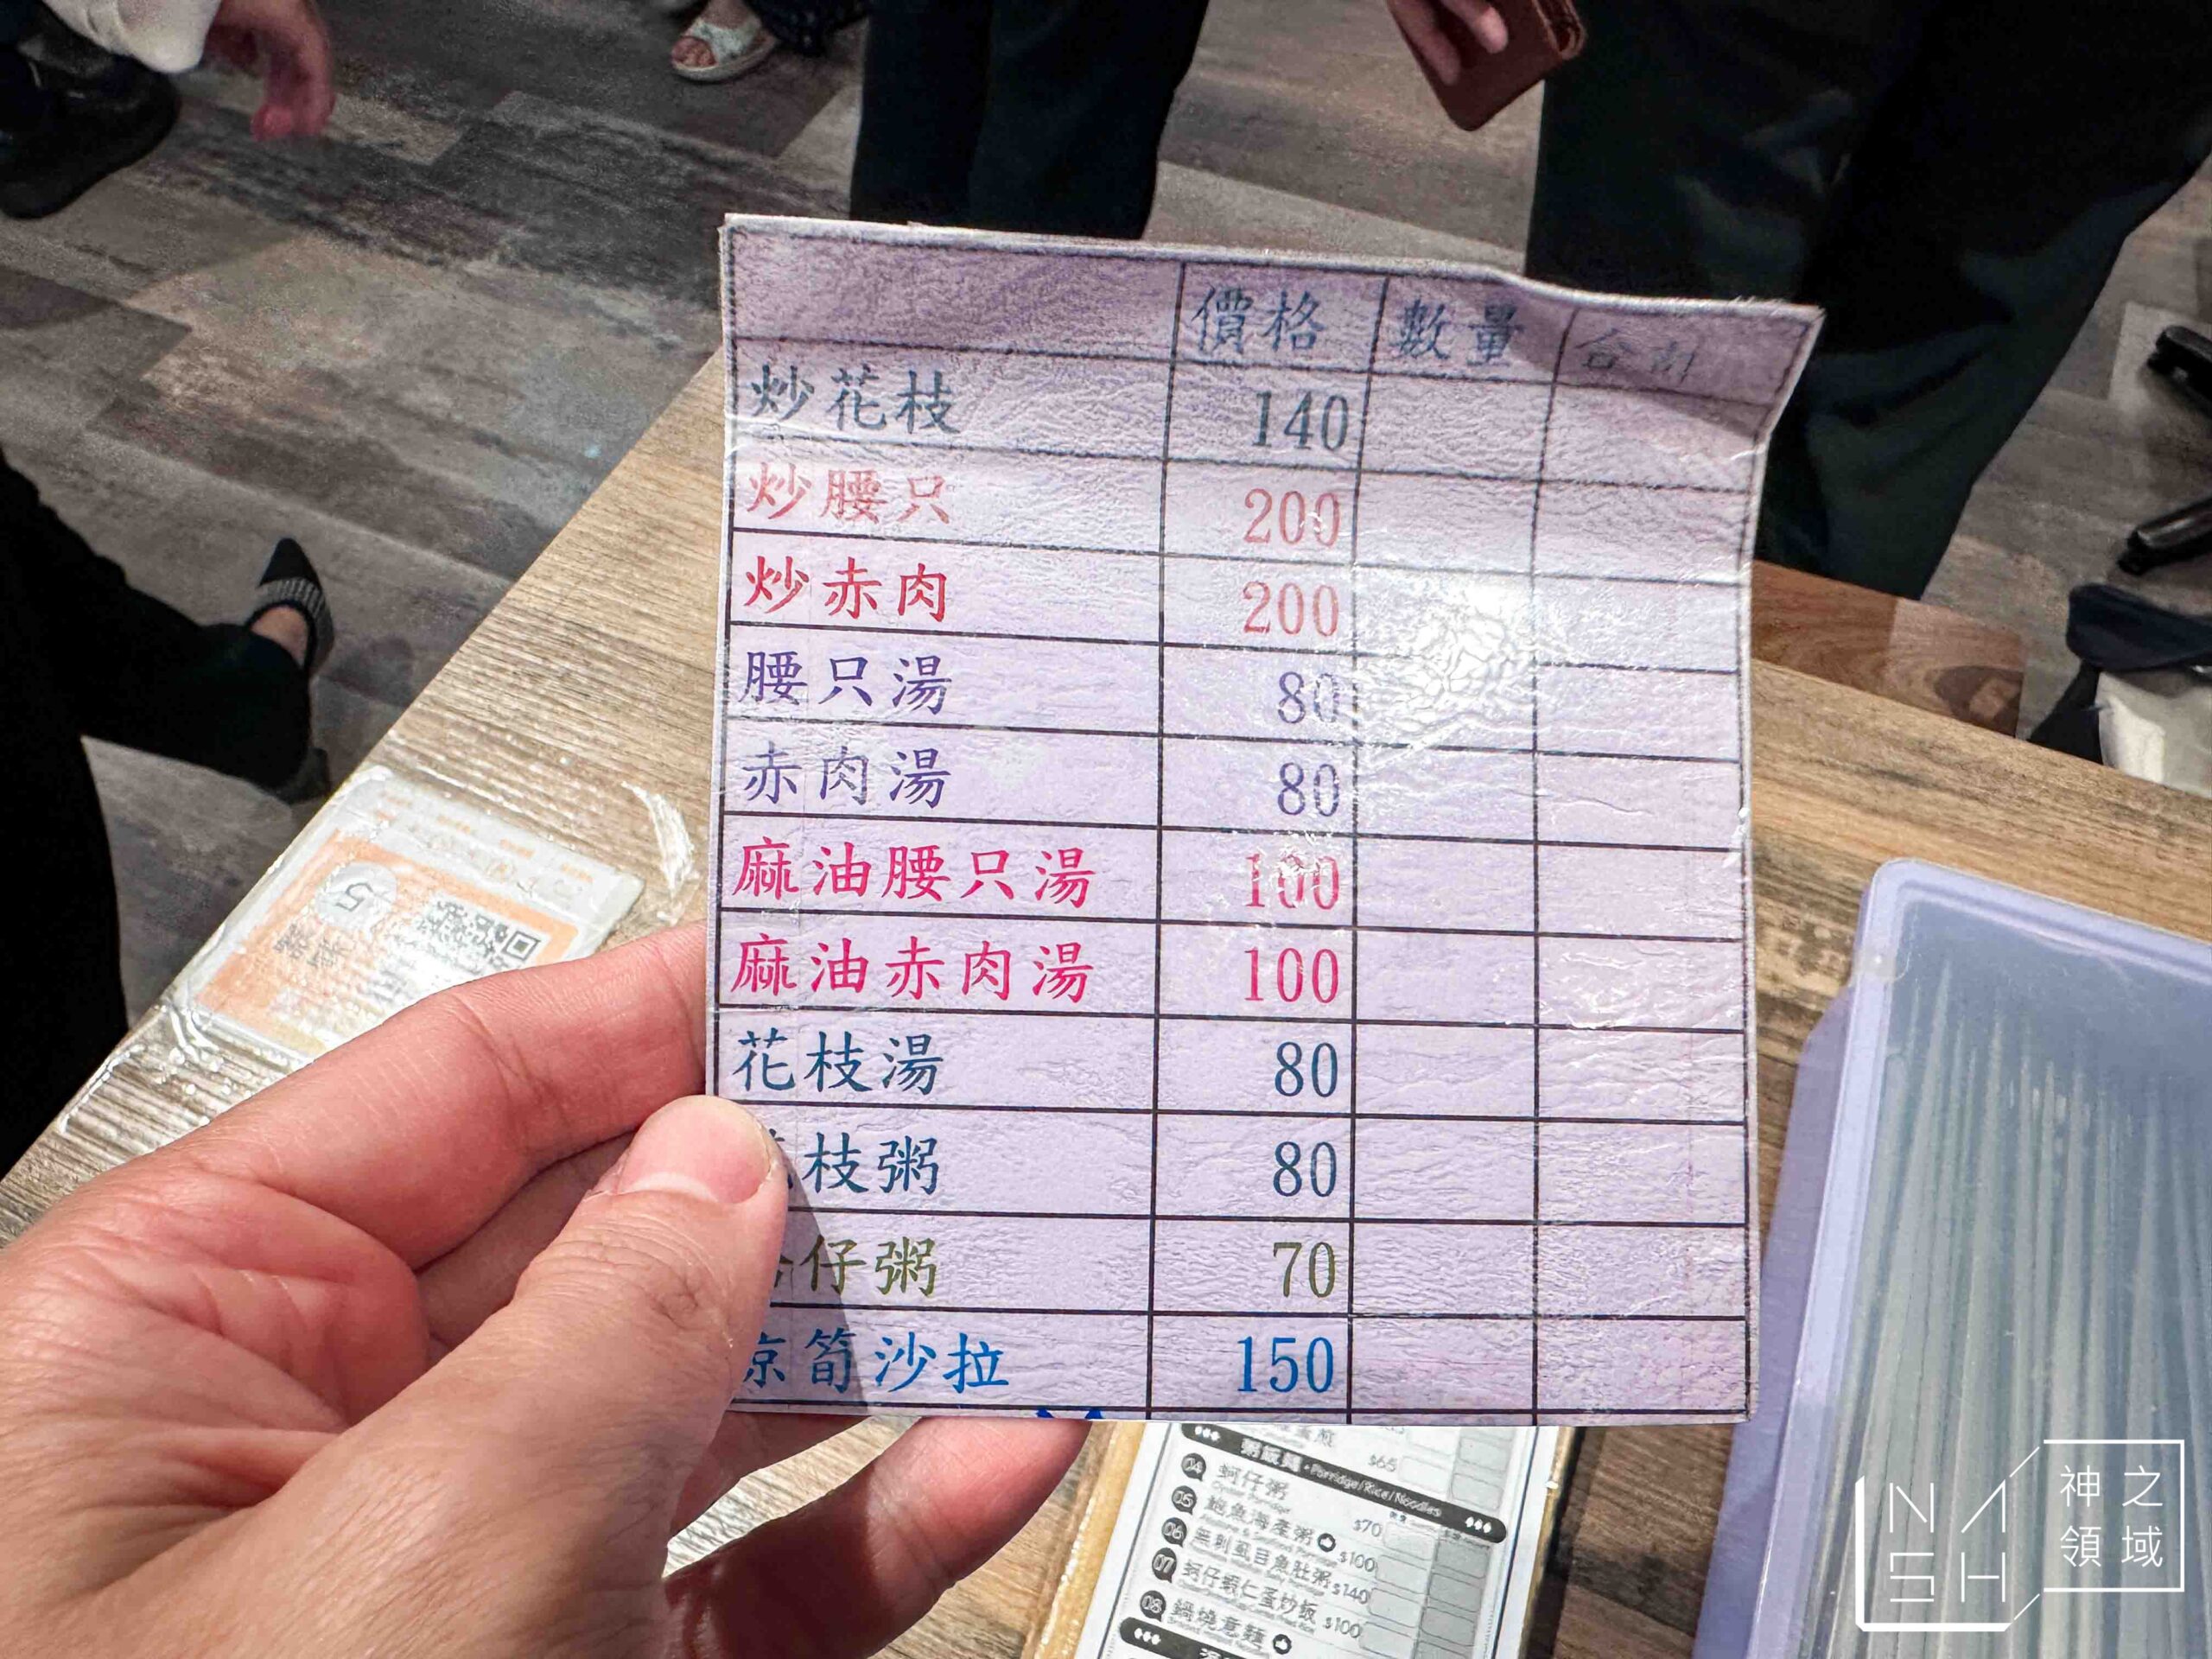 價格 數量 合計
炒花枝 140
炒腰只 200
炒赤肉 200
腰只湯 80
赤肉湯 80
麻油腰只湯 100
麻油赤肉湯 100
花枝湯 80
枝粥 80
仔粥 70
筍沙拉 150
$65
粥飯麵 · Porridge/Rice/Noodles
04 蚵仔粥 $70
Oyster Porridge
05 鮑魚海產粥 $100
06 無刺虱目魚肚粥 $140
07 蚵仔蝦仁蛋炒飯 $100
08 鍋燒意麵
5
NASH
神之
領域